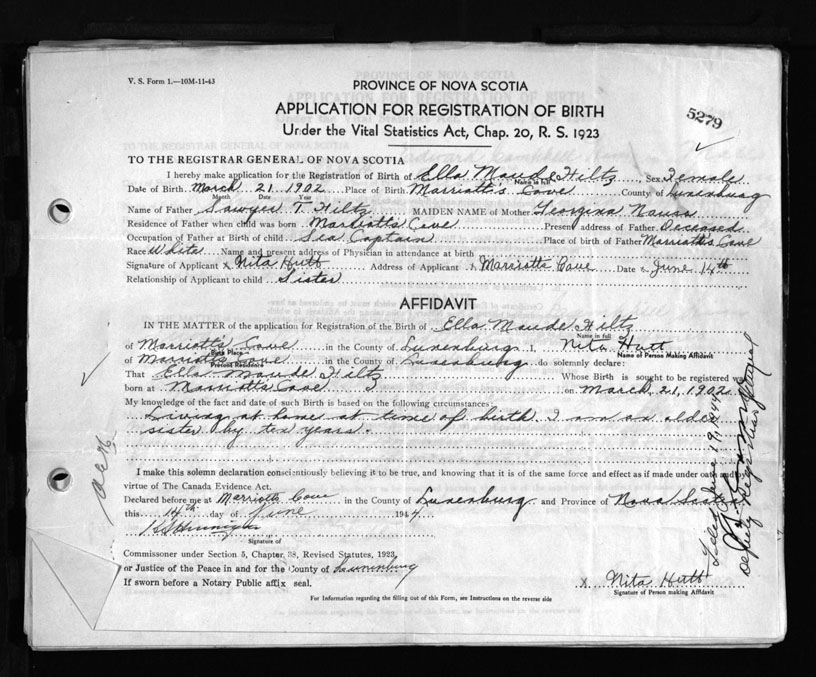 V. S. Form 1.—10M-11-43
PROVINCE OF NOVA SCOTIA
APPLICATION FOR REGISTRATION OF BIRTH
Under the Vital Statistics Act, Chap. 20, R. S. 1923
5279
TO THE REGISTRAR GENERAL OF NOVA SCOTIA
I hereby make application for the Registration of Birth of Ella Maude Hiltz, Sex Female
Name in full
Date of Birth March 21 1902 Place of Birth Marriott's Cove County of Lunenburg
Month Date Year
Name of Father Sawyer T. Hiltz MAIDEN NAME of Mother Georgina Nauss
Residence of Father when child was born Marriott's Cove Present address of Father Deceased
Occupation of Father at Birth of child Sea Captain Place of birth of Father Marriott's Cove
Race White Name and present address of Physician in attendance at birth
Signature of Applicant x Nita Hutt Address of Applicant Marriotts Cove Date June 14th
Relationship of Applicant to child Sister
AFFIDAVIT
IN THE MATTER of the application for Registration of the Birth of Ella Maude Hiltz
Name in full
of Marriott's Cove in the County of Lunenburg I, Nita Hutt
Birth Place Name of Person Making Affidavit
of Marriott's Cove in the County of Lunenburg do solemnly declare:
Present Residence
That Ella Maude Hiltz Whose Birth is sought to be registered was
born at Marriotts Cove on March 21, 1902
My knowledge of the fact and date of such Birth is based on the following circumstances:
Living at home at time of birth. I am an older
sister by ten years.
I make this solemn declaration conscientiously believing it to be true, and knowing that it is of the same force and effect as if made under oath and
virtue of The Canada Evidence Act.
Declared before me at Marriotts Cove in the County of Lunenburg and Province of Nova Scotia
this 14th day of June 1944
Signature of
Commissioner under Section 5, Chapter 38, Revised Statutes, 1923,
or Justice of the Peace in and for the County of Lunenburg
If sworn before a Notary Public affix seal.
x Nita Hutt
Signature of Person making Affidavit
For Information regarding the filling out of this Form, see Instructions on the reverse side
Filed June 19, 1944
Deputy Registrar General